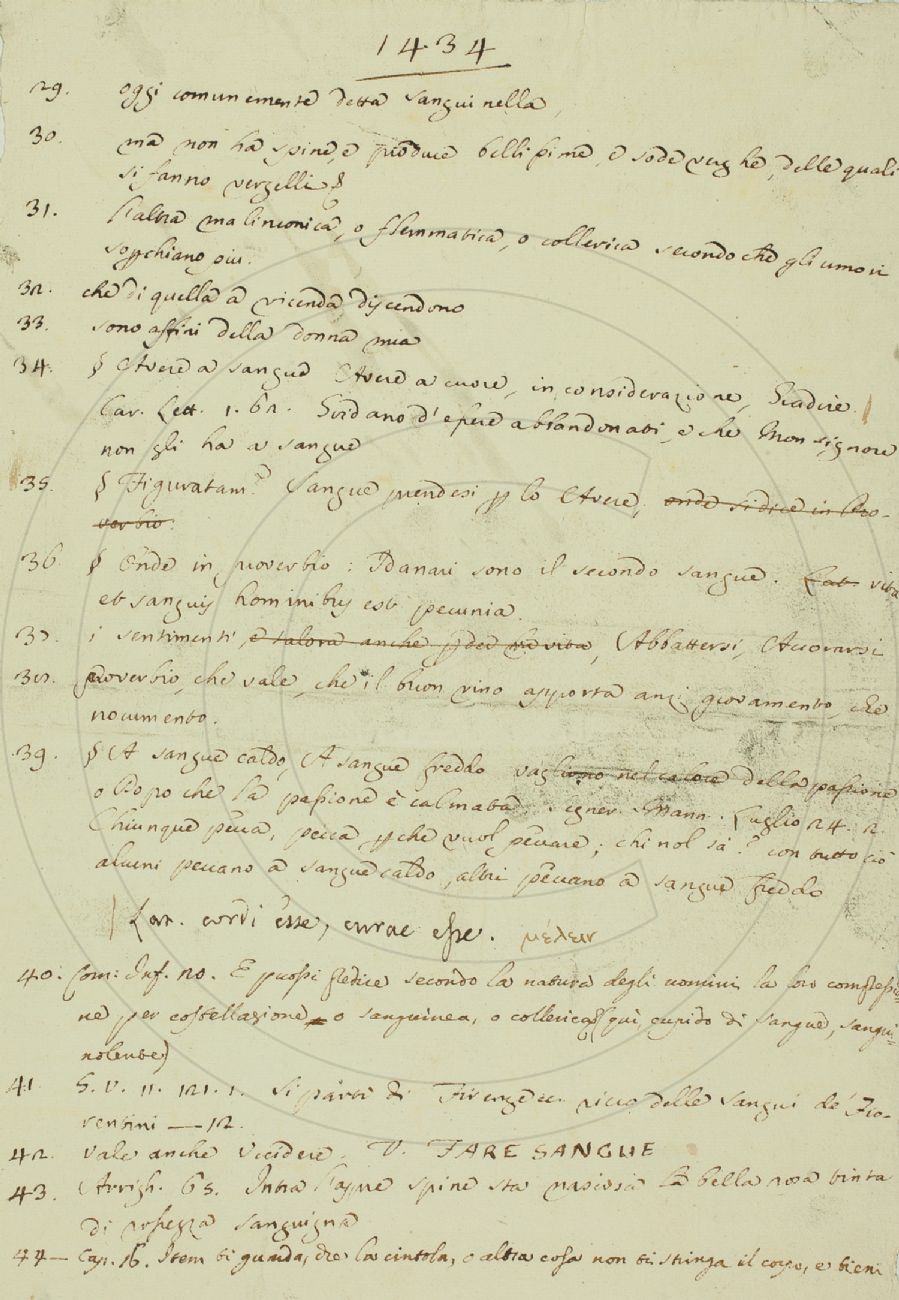 1434
29. oggi comunemente detta sanguinella,
30. ma non ha spine, e produce bellissime, e sode verghe, delle quali
si fanno vergelli §
31. l'altra malinconica, o flemmatica, o collerica secondo che gli umori
soperchiano piu.
32. che di quella a vicenda discendono
33. sono affini della donna mia
34. § Avere a sangue Avere a cuore, in considerazione, Gradire. |
Car. Lett. 1. 62. Gridano d'essere abbandonati, e che Monsignore
non gli ha a sangue
35. § Figuratam.e Sangue prendesi p lo Avere, onde si dice in Pro-
verbio.
36. § Onde in proverbio: I danari sono il secondo sangue. Lat. vita
et sanguis hominibus est pecunia.
37. i sentimenti, e talora anche, Abbattersi, Accorarsi
38. proverbio, che vale, che il buon vino apporta anzi giovamento, che
nocumento.
39. § A sangue caldo, A sangue freddo vagliono nel calore della passione
o Dopo che la passione è calmata. Segner. Mann. Luglio 24. 2.
Chiunque pecca, pecca pchè vuol peccare; chi nol sa? con tutto ciò
alcuni peccano a sangue caldo, altri peccano a sangue freddo
| Lat. cordi esse, curae esse. μέλειν
40. Com: Inf. 20. E puossi predice secondo la natura degli uomini la loro complessio-
ne per costellazione o sanguinea, o collerica (qui, cupido di sangue, sangui-
nolente)
41. G. V. 11. 121. 1. Si partì di Firenze ec. ricco delle sangui de' Fio-
rentini — 12.
42. Vale anche Uccidere. V. FARE SANGUE
43. Arrigh. 65. Intra l'aspre spine sta nascosa la bella rosa tinta
di rossezza sanguigna
44 — Cap. 16. Item ti guarda, che la cintola, o altra cosa non ti stringa il corpo, e tieni